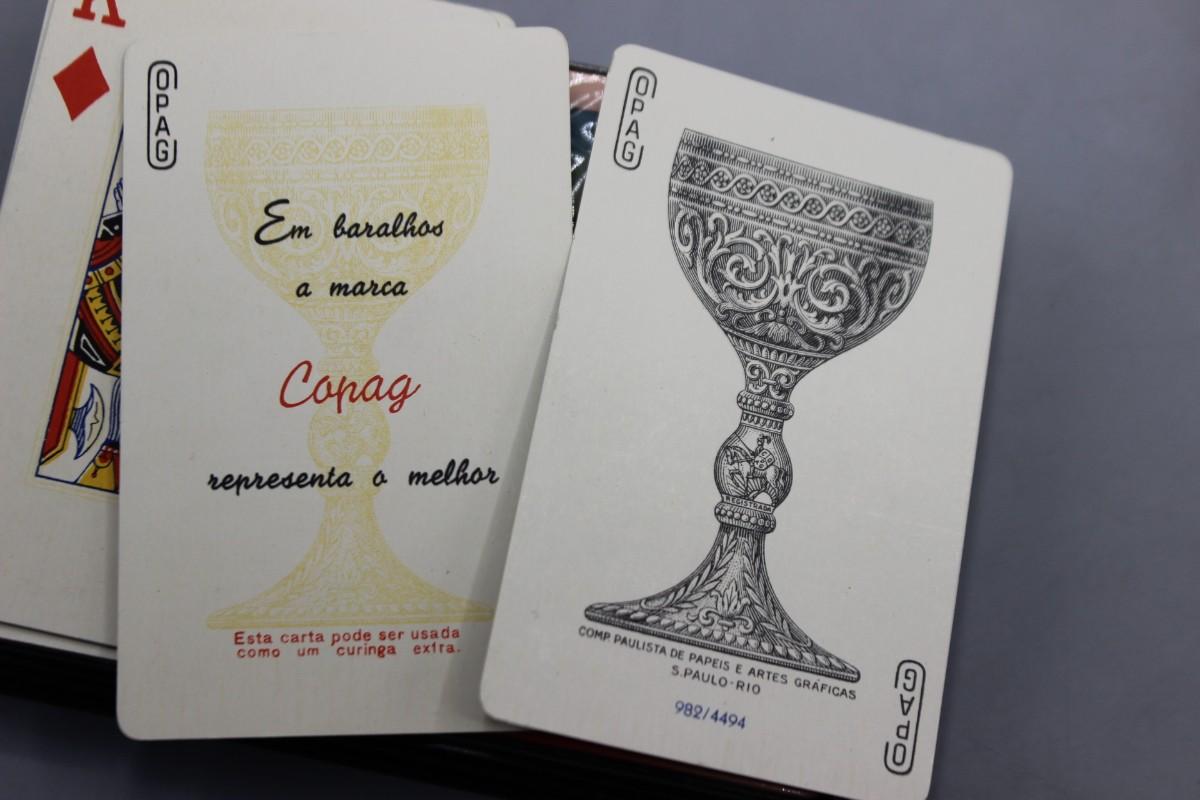 K
COPAG
Em baralhos
a marca
Copag
representa o melhor
Esta carta pode ser usada
como um curinga extra.
COPAG
REGISTRADA
COMP. PAULISTA DE PAPEIS E ARTES GRÁFICAS
S.PAULO-RIO
982/4494
COPAG